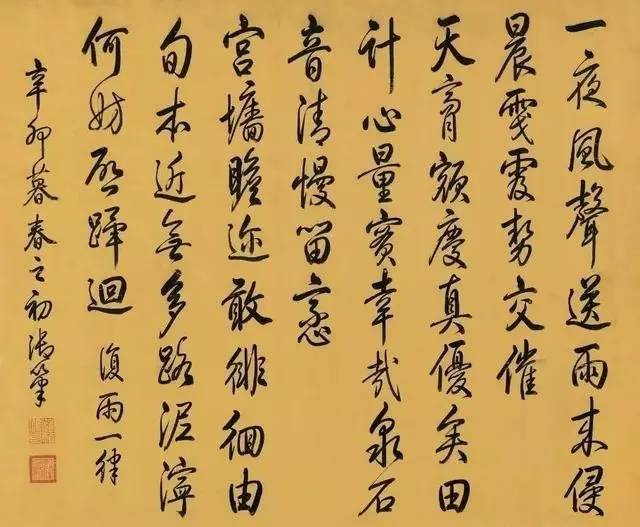 一夜風聲送雨来侵
晨勢交催
天膏額慶真優矣田
計心量實幸哉泉石
音清慢留戀
宮墻瞻迩敢徘徊由
旬本近無多路泥濘
何妨啟蹕迴 復雨一律
辛卯暮春之初御筆